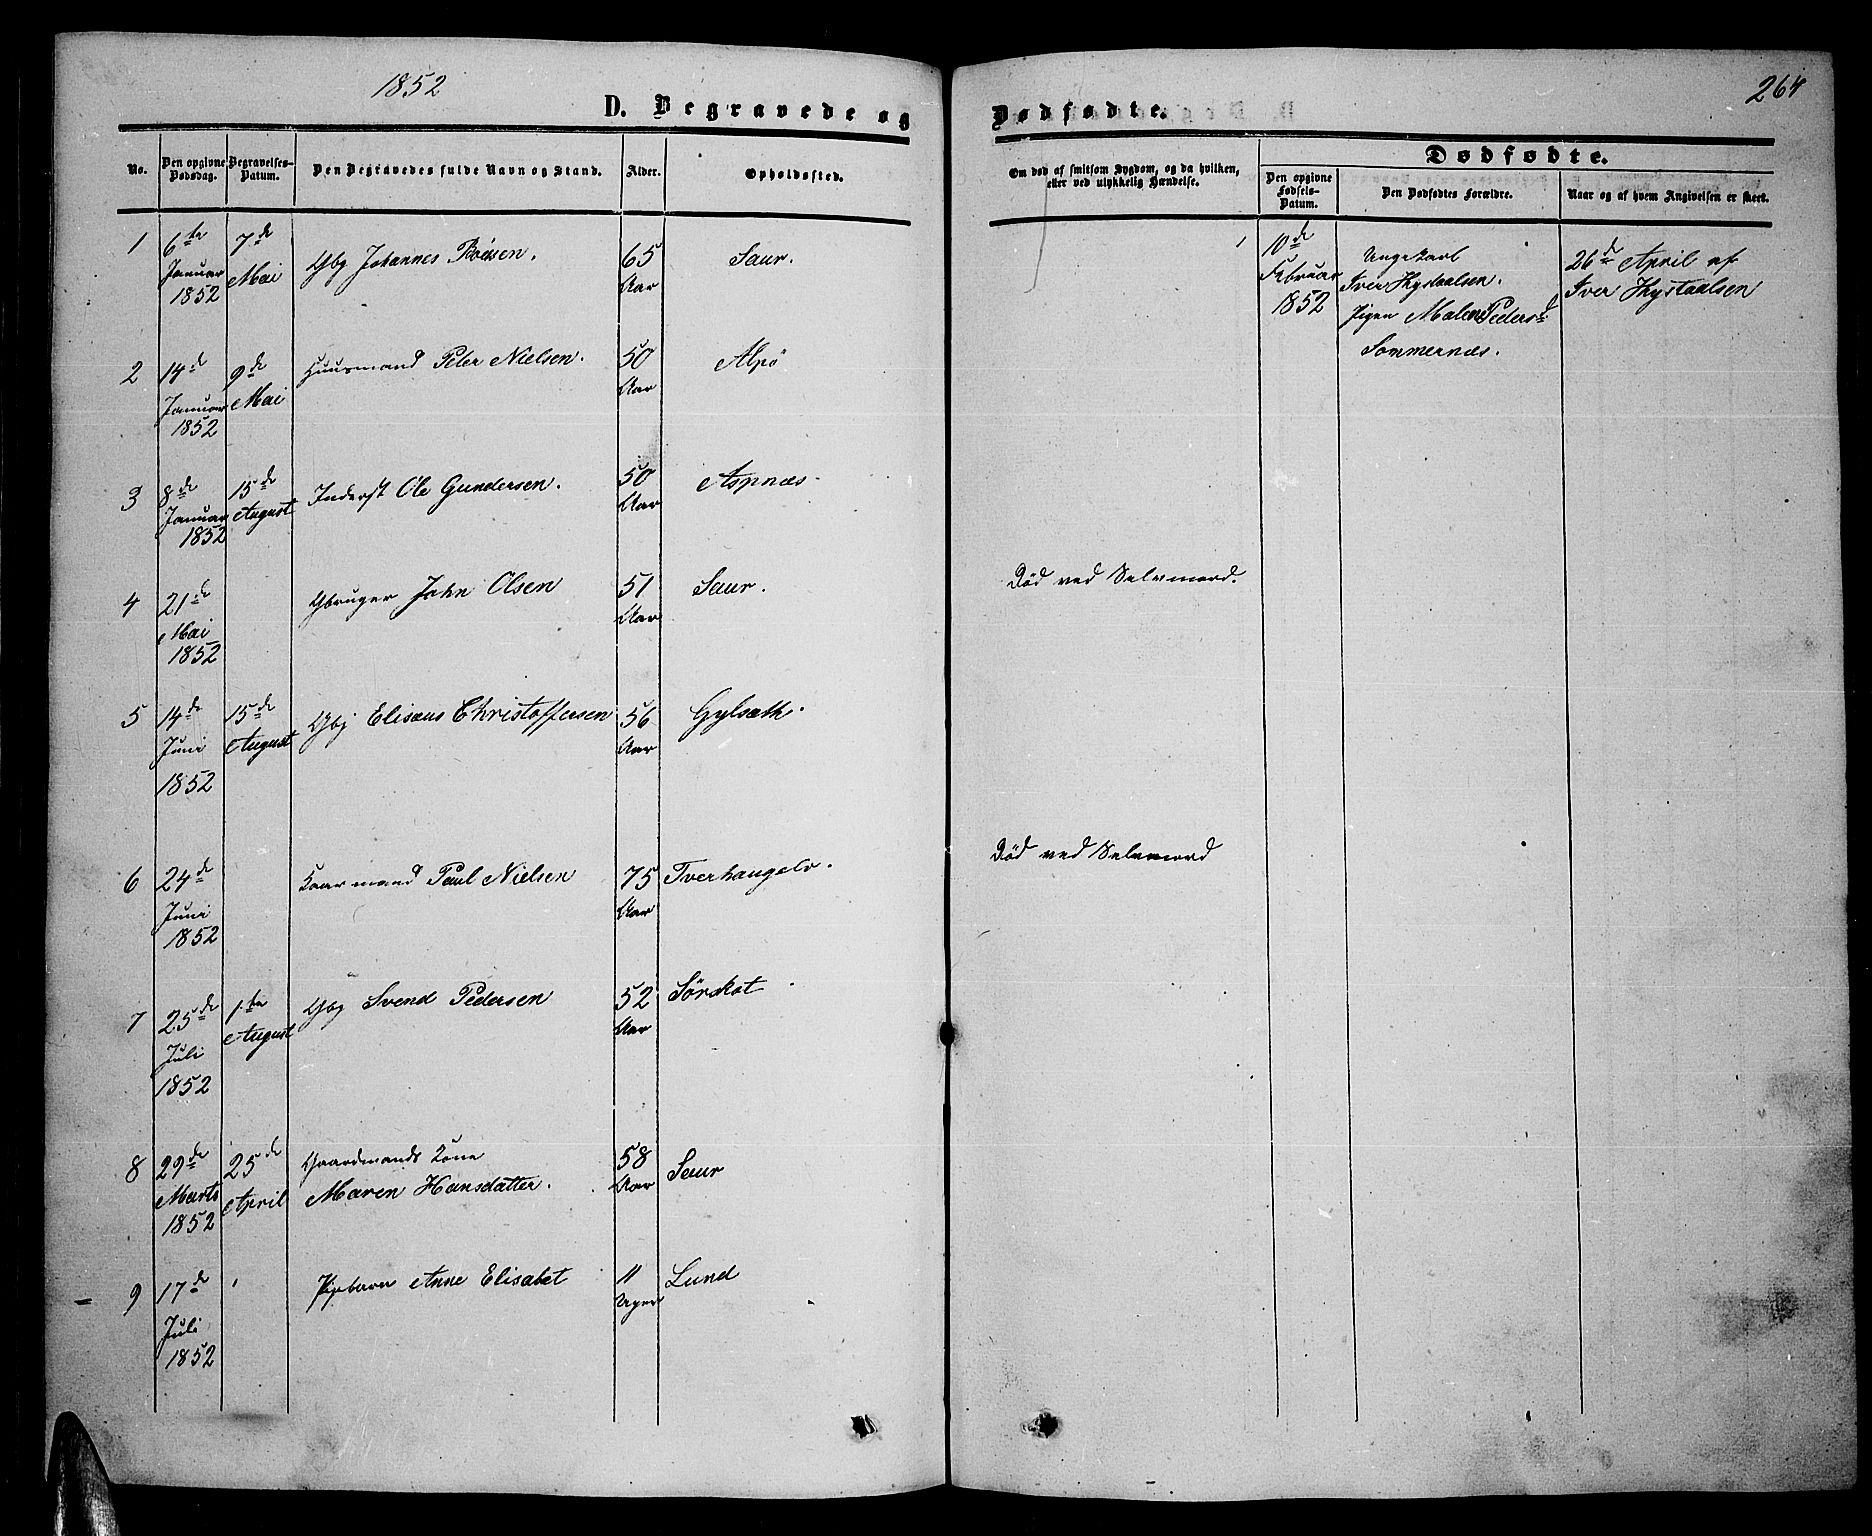 1852
264
D. Begravede og
Dødfødte.
No.
Den opgivne Dødsdag.
Begravelses-Datum.
Den Begravedes fulde Navn og Stand.
Alder.
Opholdssted.
Om død af smitsom Sygdom, og da hvilken, eller ved ulykkelig Hændelse.
Dødfødte.
Den opgivne Fødsels-Datum.
Den Dødfødtes Forældre.
Naar og af hvem Angivelsen er skeet.
1
6te Januar 1852
7de Mai
Gbg Johannes
65 Aar
Saur.
1
10de Februar 1852
Ungekarl
Iver
Pigen Malene Pedersd:
Sommernæs.
26de April af
Iver
2
14de Januar 1852
9de Mai
Huusmand Peter Nielsen.
50 Aar
Alpö
3
8de Januar 1852
15de August
Inderst Ole Gundersen.
50 Aar
Aspnæs.
4
21de Mai 1852
Gbruger John Olsen
51 Aar
Saur.
Död ved Selvmord.
5
14de Juni 1852
15de August
Gbg Elisæus Christoffersen
56 Aar
Gylsæth.
6
24de Juni 1852
Kaarmand Paul Nielsen
75 Aar
Död ved Selvmord
7
25de Juli 1852
1te August
Gbg Svend Pedersen
52 Aar
Sörskot
8
29de Marts 1852
25de April
Gaardmands Kone
Maren Hansdatter.
58 Aar
Saur
9
17de Juli 1852
Pigebarn Anne Elisabet
11 Uger
Lund